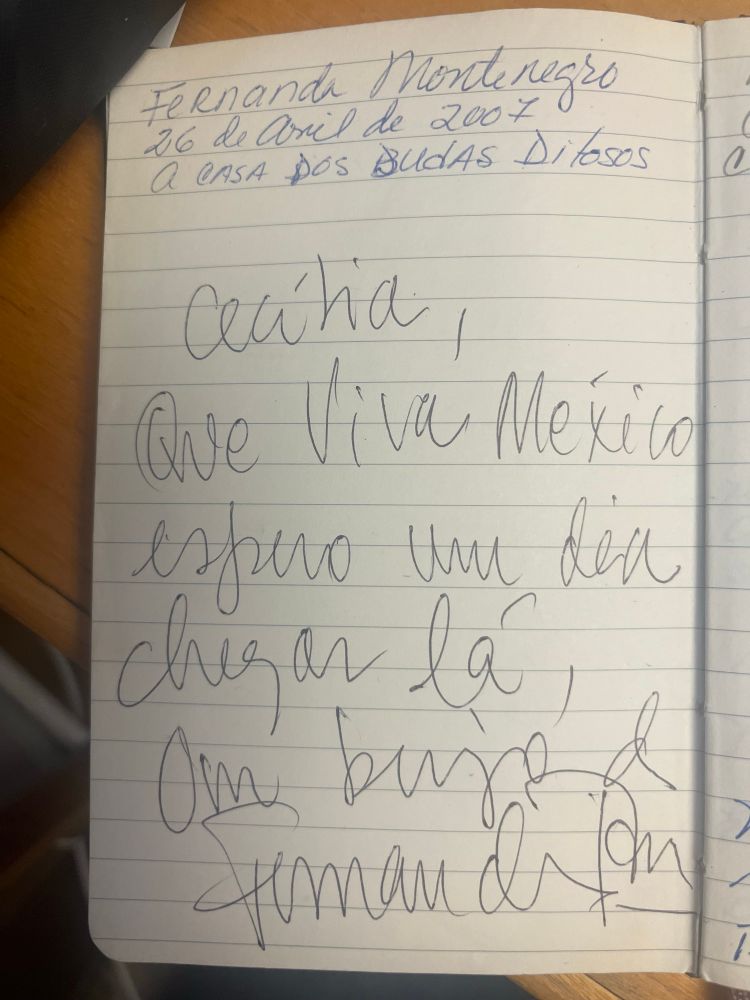 Fernanda Montenegro
26 de abril de 2007
A CASA DOS BUDAS Ditosos
Cecília,
Que Viva México
espero um dia
chegar lá,
Um beijo d
Fernanda